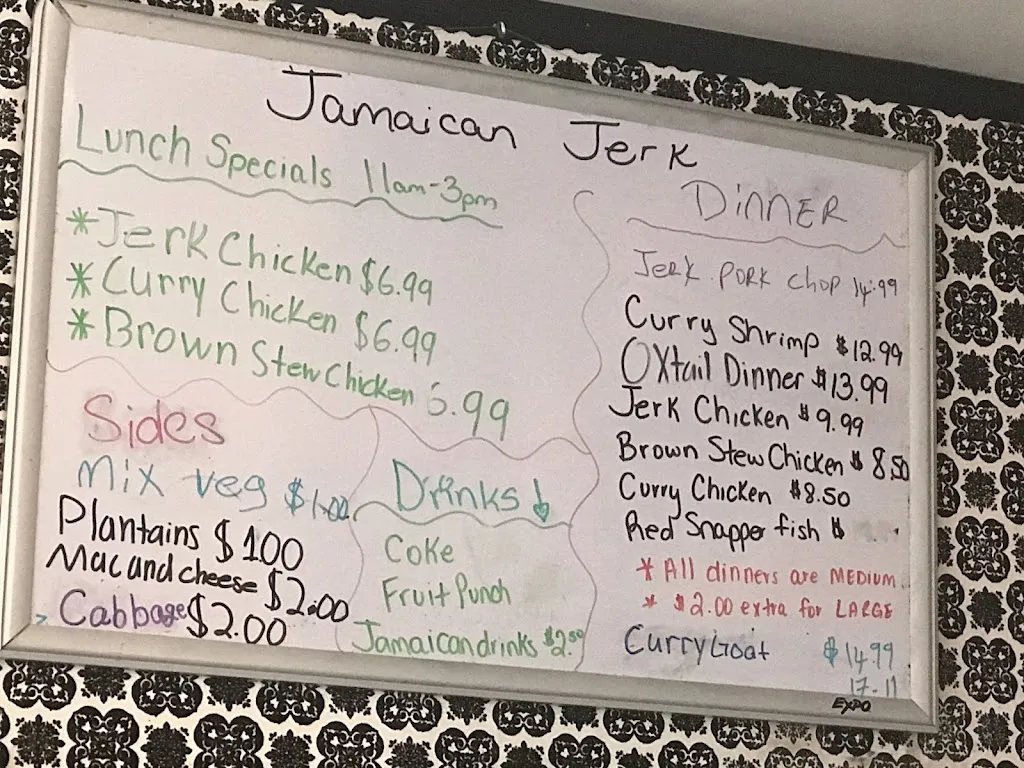 Jamaican Jerk
Lunch Specials 11am-3pm
*Jerk Chicken $6.99
*Curry Chicken $6.99
*Brown Stew Chicken 6.99
Sides
Mix veg $1.00
Plantains $100
Mac and cheese $2.00
Cabbage $2.00
Drinks ↓
Coke
Fruit Punch
Jamaican drinks $2.50
DiNNER
Jerk PORK CHOP 14.99
Curry Shrimp $12.99
OXtail Dinner $13.99
Jerk Chicken $9.99
Brown Stew Chicken $8.50
Curry Chicken $8.50
Red Snapper fish $
* All dinners are MEDIUM
* $2.00 extra for LARGE
Curry Goat $14.99
17-11
EXPO